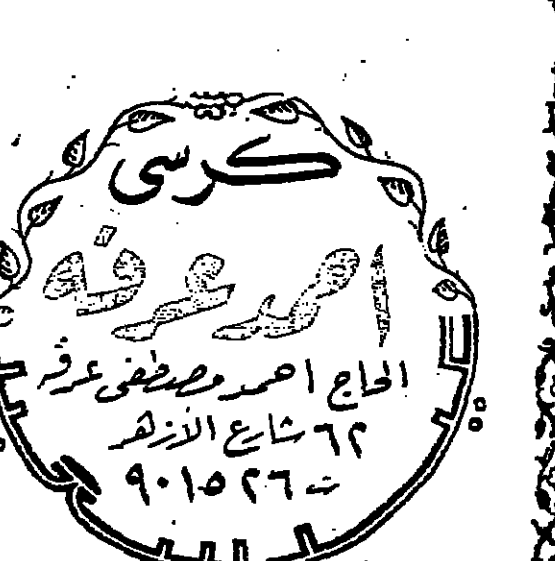 كرسى
احمد عرفه
الحاج احمد مصطفى عرفه
٦٢ شارع الأزهر
ت ٩٠١٥٢٦